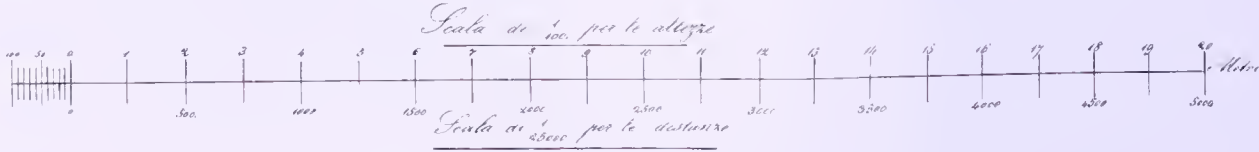 Scala di 1/100 per le altezze
100 50 0 1 2 3 4 5 6 7 8 9 10 11 12 13 14 15 16 17 18 19 20
Metri
0 500 1000 1500 2000 2500 3000 3500 4000 4500 5000
Scala di 1/25000 per le distanze